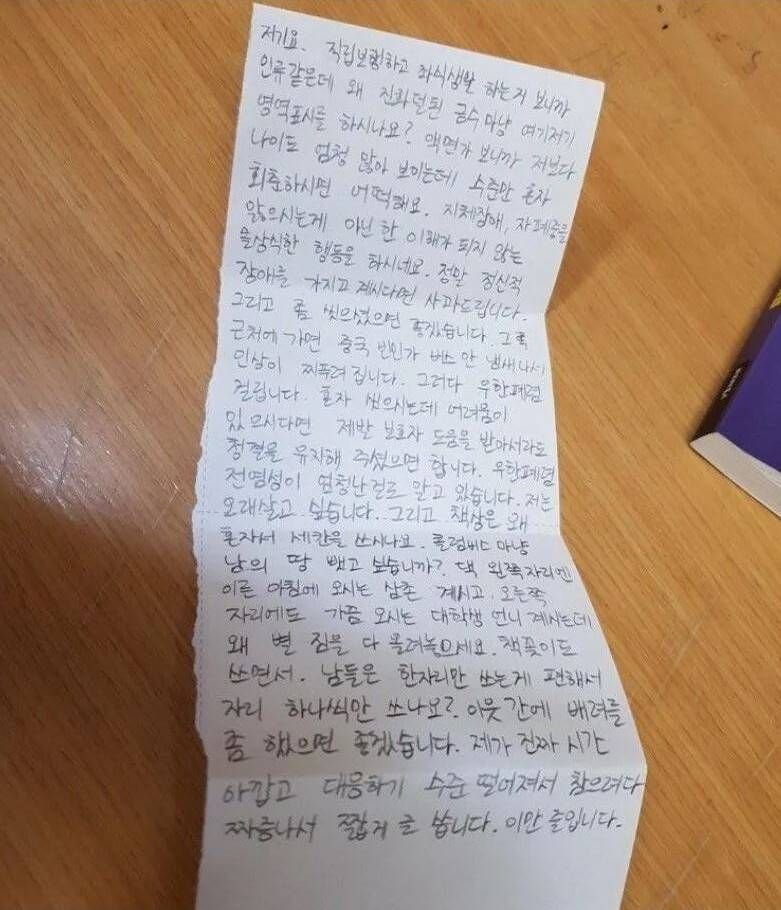 저기요. 직립보행하고 좌식생활 하는거 보니까
인류같은데 왜 진화덜된 금수마냥 여기저기
영역표시를 하시나요? 액면가 보니까 저보다
나이도 엄청 많아 보이는데 수준만 혼자
회춘하시면 어떡해요. 지체장애, 자폐증을
앓으시는게 아닌 한 이해가 되지 않는
몰상식한 행동을 하시네요. 정말 정신적
장애를 가지고 계시다면 사과드립니다.
그리고 좀 씻으셨으면 좋겠습니다. 그쪽
근처에 가면 중국 빈민가 버스 안 냄새나서
인상이 찌푸려 집니다. 그러다 우한폐렴
걸립니다. 혼자 씻으시는데 어려움이
있으시다면 제발 보호자 도움을 받아서라도
청결을 유지해 주셨으면 합니다. 우한폐렴
전염성이 엄청난걸로 알고 있습니다. 저는
오래살고 싶습니다. 그리고 책상은 왜
혼자서 세칸을 쓰시나요. 콜럼버스 마냥
남의 땅 뺏고 싶습니까? 댁 왼쪽자리엔
이른 아침에 오시는 삼촌 계시고 오른쪽
자리에도 가끔 오시는 대학생 언니 계시는데
왜 별 짐을 다 올려놓으세요. 책꽂이도
쓰면서. 남들은 한자리만 쓰는게 편해서
자리 하나씩만 쓰나요? 이웃 간에 배려를
좀 했으면 좋겠습니다. 제가 진짜 시간
아깝고 대응하기 수준 떨어져서 참으려다
짜증나서 짧게 글 씁니다. 이만 줄입니다.